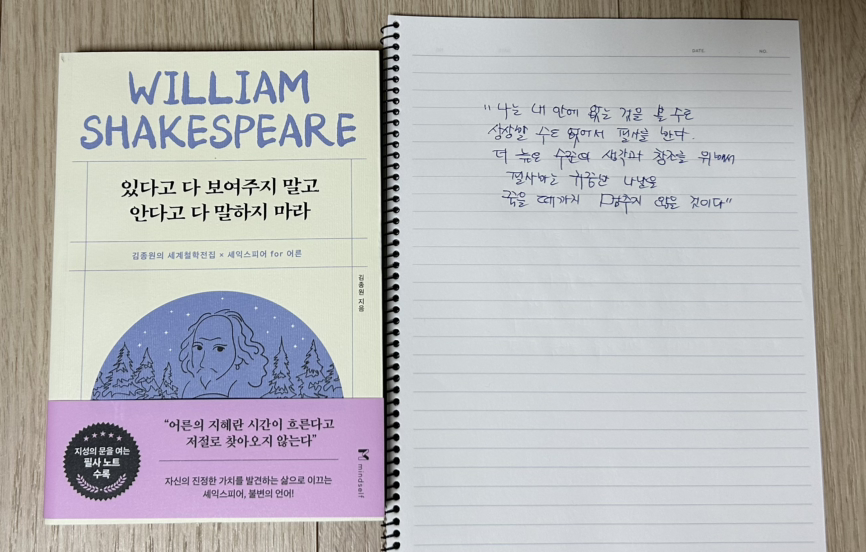 WILLIAM
SHAKESPEARE
있다고 다 보여주지 말고
안다고 다 말하지 마라
김종원의 세계철학전집 × 셰익스피어 for 어른
김종원 지음
“어른의 지혜란 시간이 흐른다고
저절로 찾아오지 않는다”
지성의 문을 여는
필사 노트
수록
자신의 진정한 가치를 발견하는 삶으로 이끄는
셰익스피어, 불변의 언어!
mindself
DATE.
NO.
"나는 내 안에 없는 것을 볼 수도
상상할 수도 없어서 필사를 한다.
더 높은 수준의 생각과 창조를 위해서
필사하는 귀중한 나날을
죽을 때까지 멈추지 않을 것이다"